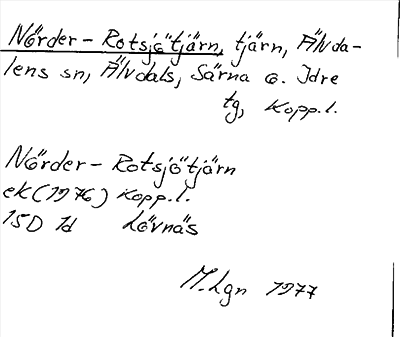 Nörder-Rotsjötjärn, tjärn, Älvda-
lens sn, Älvdals, Särna o. Idre
tg, Kopp.l.
Nörder-Rotsjötjärn
ek (1976) Kopp.l.
15D 1d Lövnäs
M.Lgn 1977